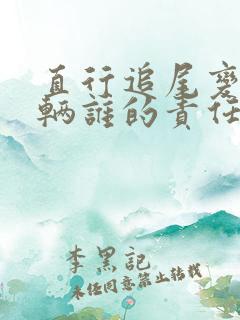 直行追尾变
辆谁的责任
李黑記
未任同意禁止转载